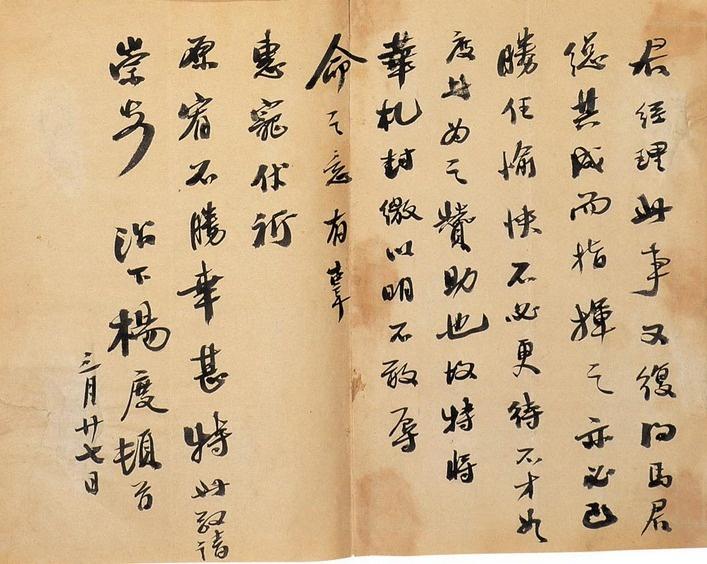 君經理此事又復得馬君
總其成而指揮之亦必己
勝任愉快不必更待不才如
度此為之贊助也故特將
華札封繳以明不敢辱
命之意有辜
惠寵伏祈
原宥不勝幸甚特此敬請
崇安 治下楊度頓首
三月廿七日